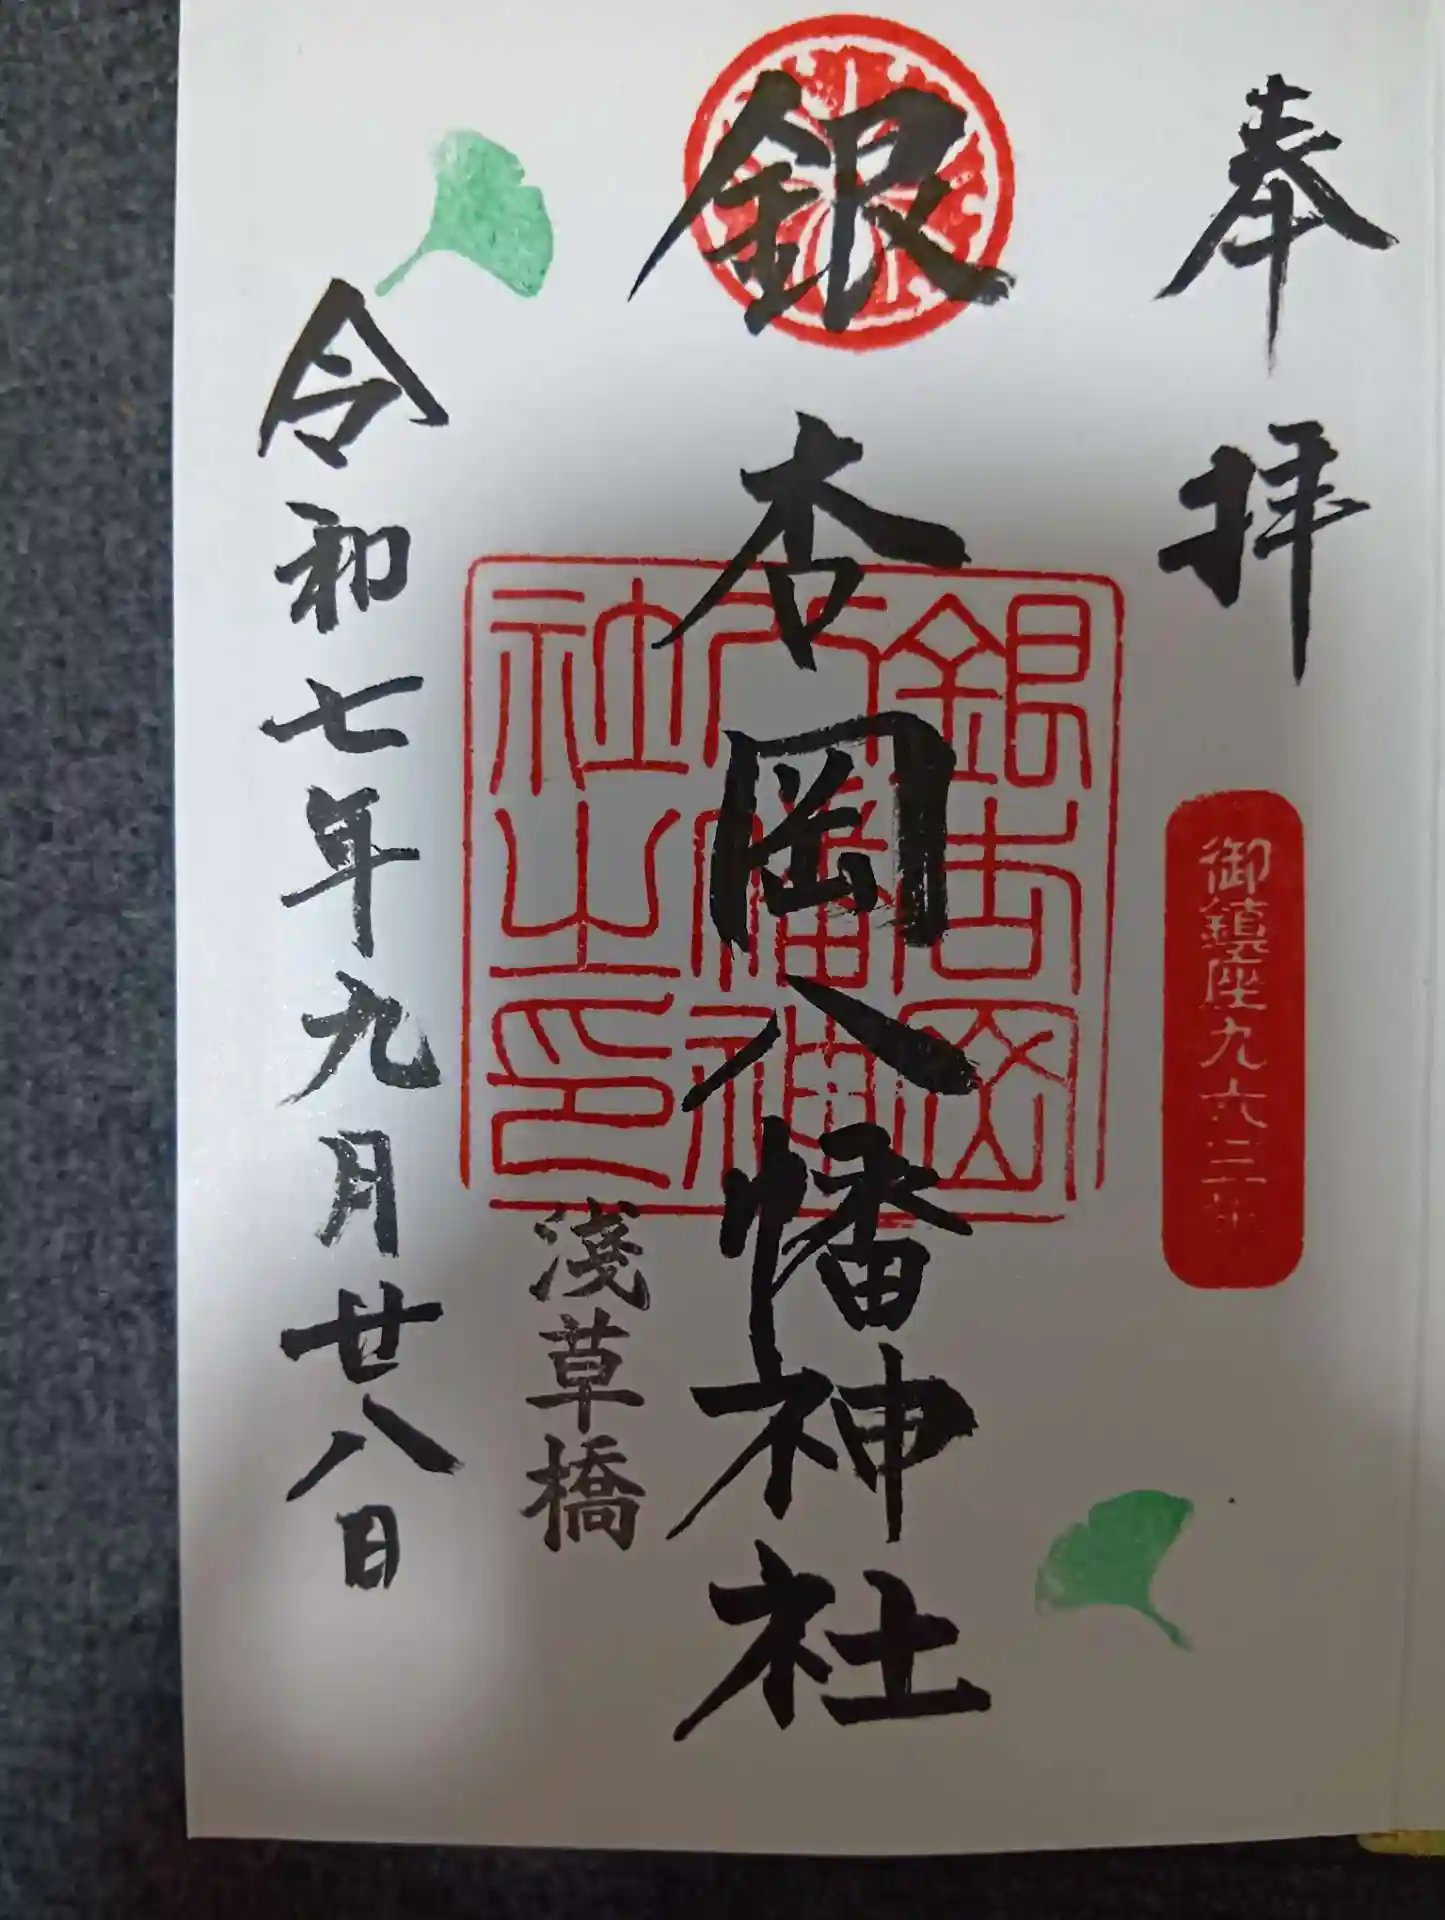 奉拝
御鎮座九六三年
銀杏岡八幡神社
銀杏岡
八幡神
社之印
淺草橋
令和七年九月廿八日